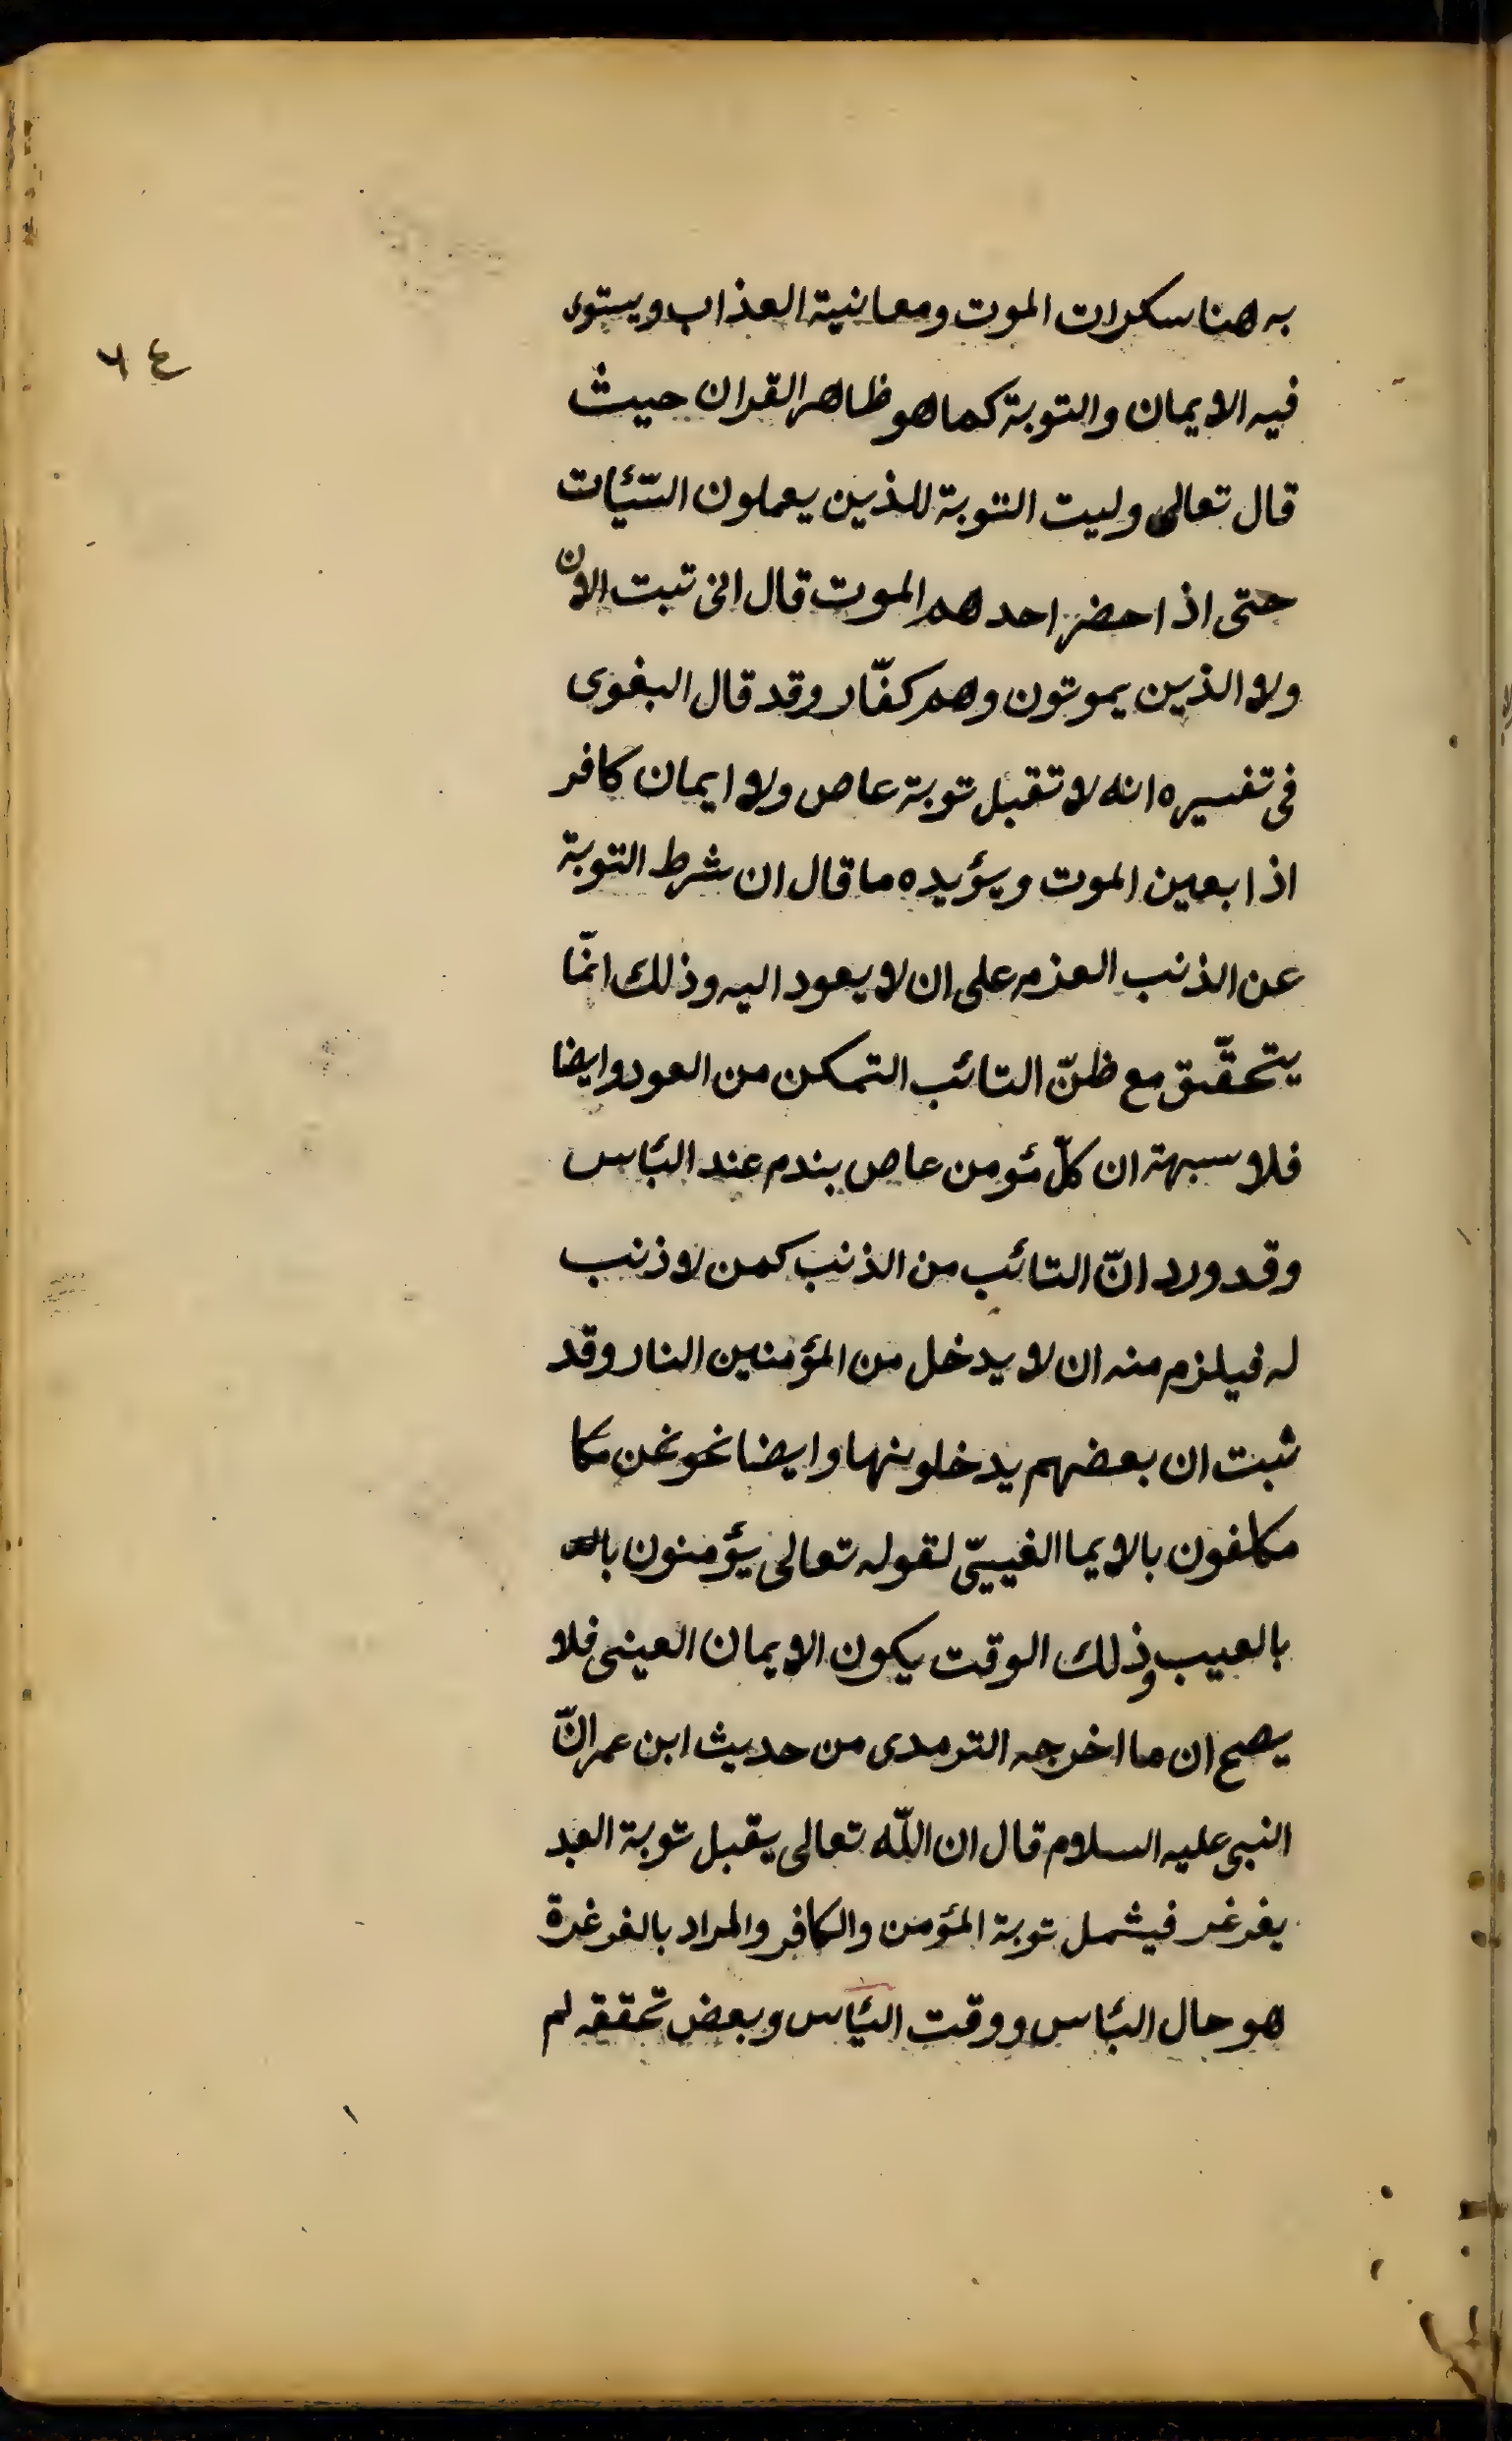 به هنا سكرات الموت ومعانية العذاب ويستوى
٦٤
فيه الايمان والتوبة كما هو ظاهر القران حيث
قال تعالى وليت التوبة للذين يعملون السّئيات
حتى اذا حضر احدهم الموت قال انى تبت الان
ولا الذين يموتون وهم كفّار وقد قال البغوى
فى تفسيره انه لا تقبل توبة عاص ولا ايمان كافر
اذا بعين الموت ويؤيده ما قال ان شرط التوبة
عن الذنب العزم على ان لا يعود اليه وذلك انمّا
يتحقّق مع ظنّ التائب التمكن من العود وايضا
فلا سبهة ان كلّ مئومن عاص يندم عند البئاس
وقد ورد انّ التائب من الذنب كمن لا ذنب
له فيلزم منه ان لا يدخل من المؤمنين النار وقد
ثبت ان بعضهم يدخلونها وايضا نحو نحن مكا
مكلفون بالايما الغيبيّ لقوله تعالى يؤمنون بالله
بالعيب وذلك الوقت يكون الايمان العينى فلا
يصح ان ما اخرجه الترمدى من حديث ابن عمر انّ
النبى عليه السلام قال ان اللّه تعالى يقبل توبة العبد
يغرغر فيشمل توبة المئومن والكافر والمراد بالغرغرة
هو حال البئاس ووقت اليئاس وبعض تحققه لم